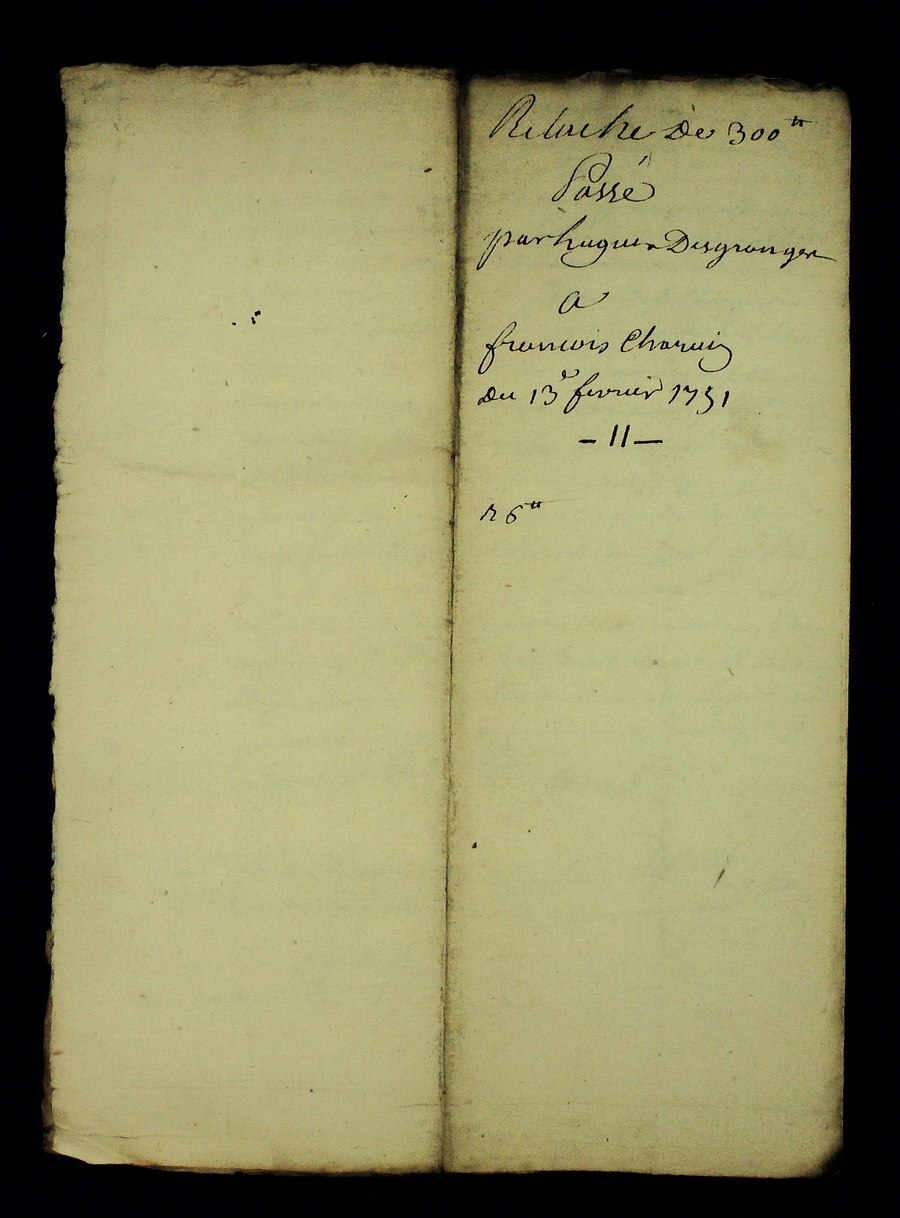 Relache de 300ᵗᵗ
Passé
par hugue Desgranger
a
francois Charvin
du 13ᵉ fevrier 1751
- 11 -
26ᵗᵗ